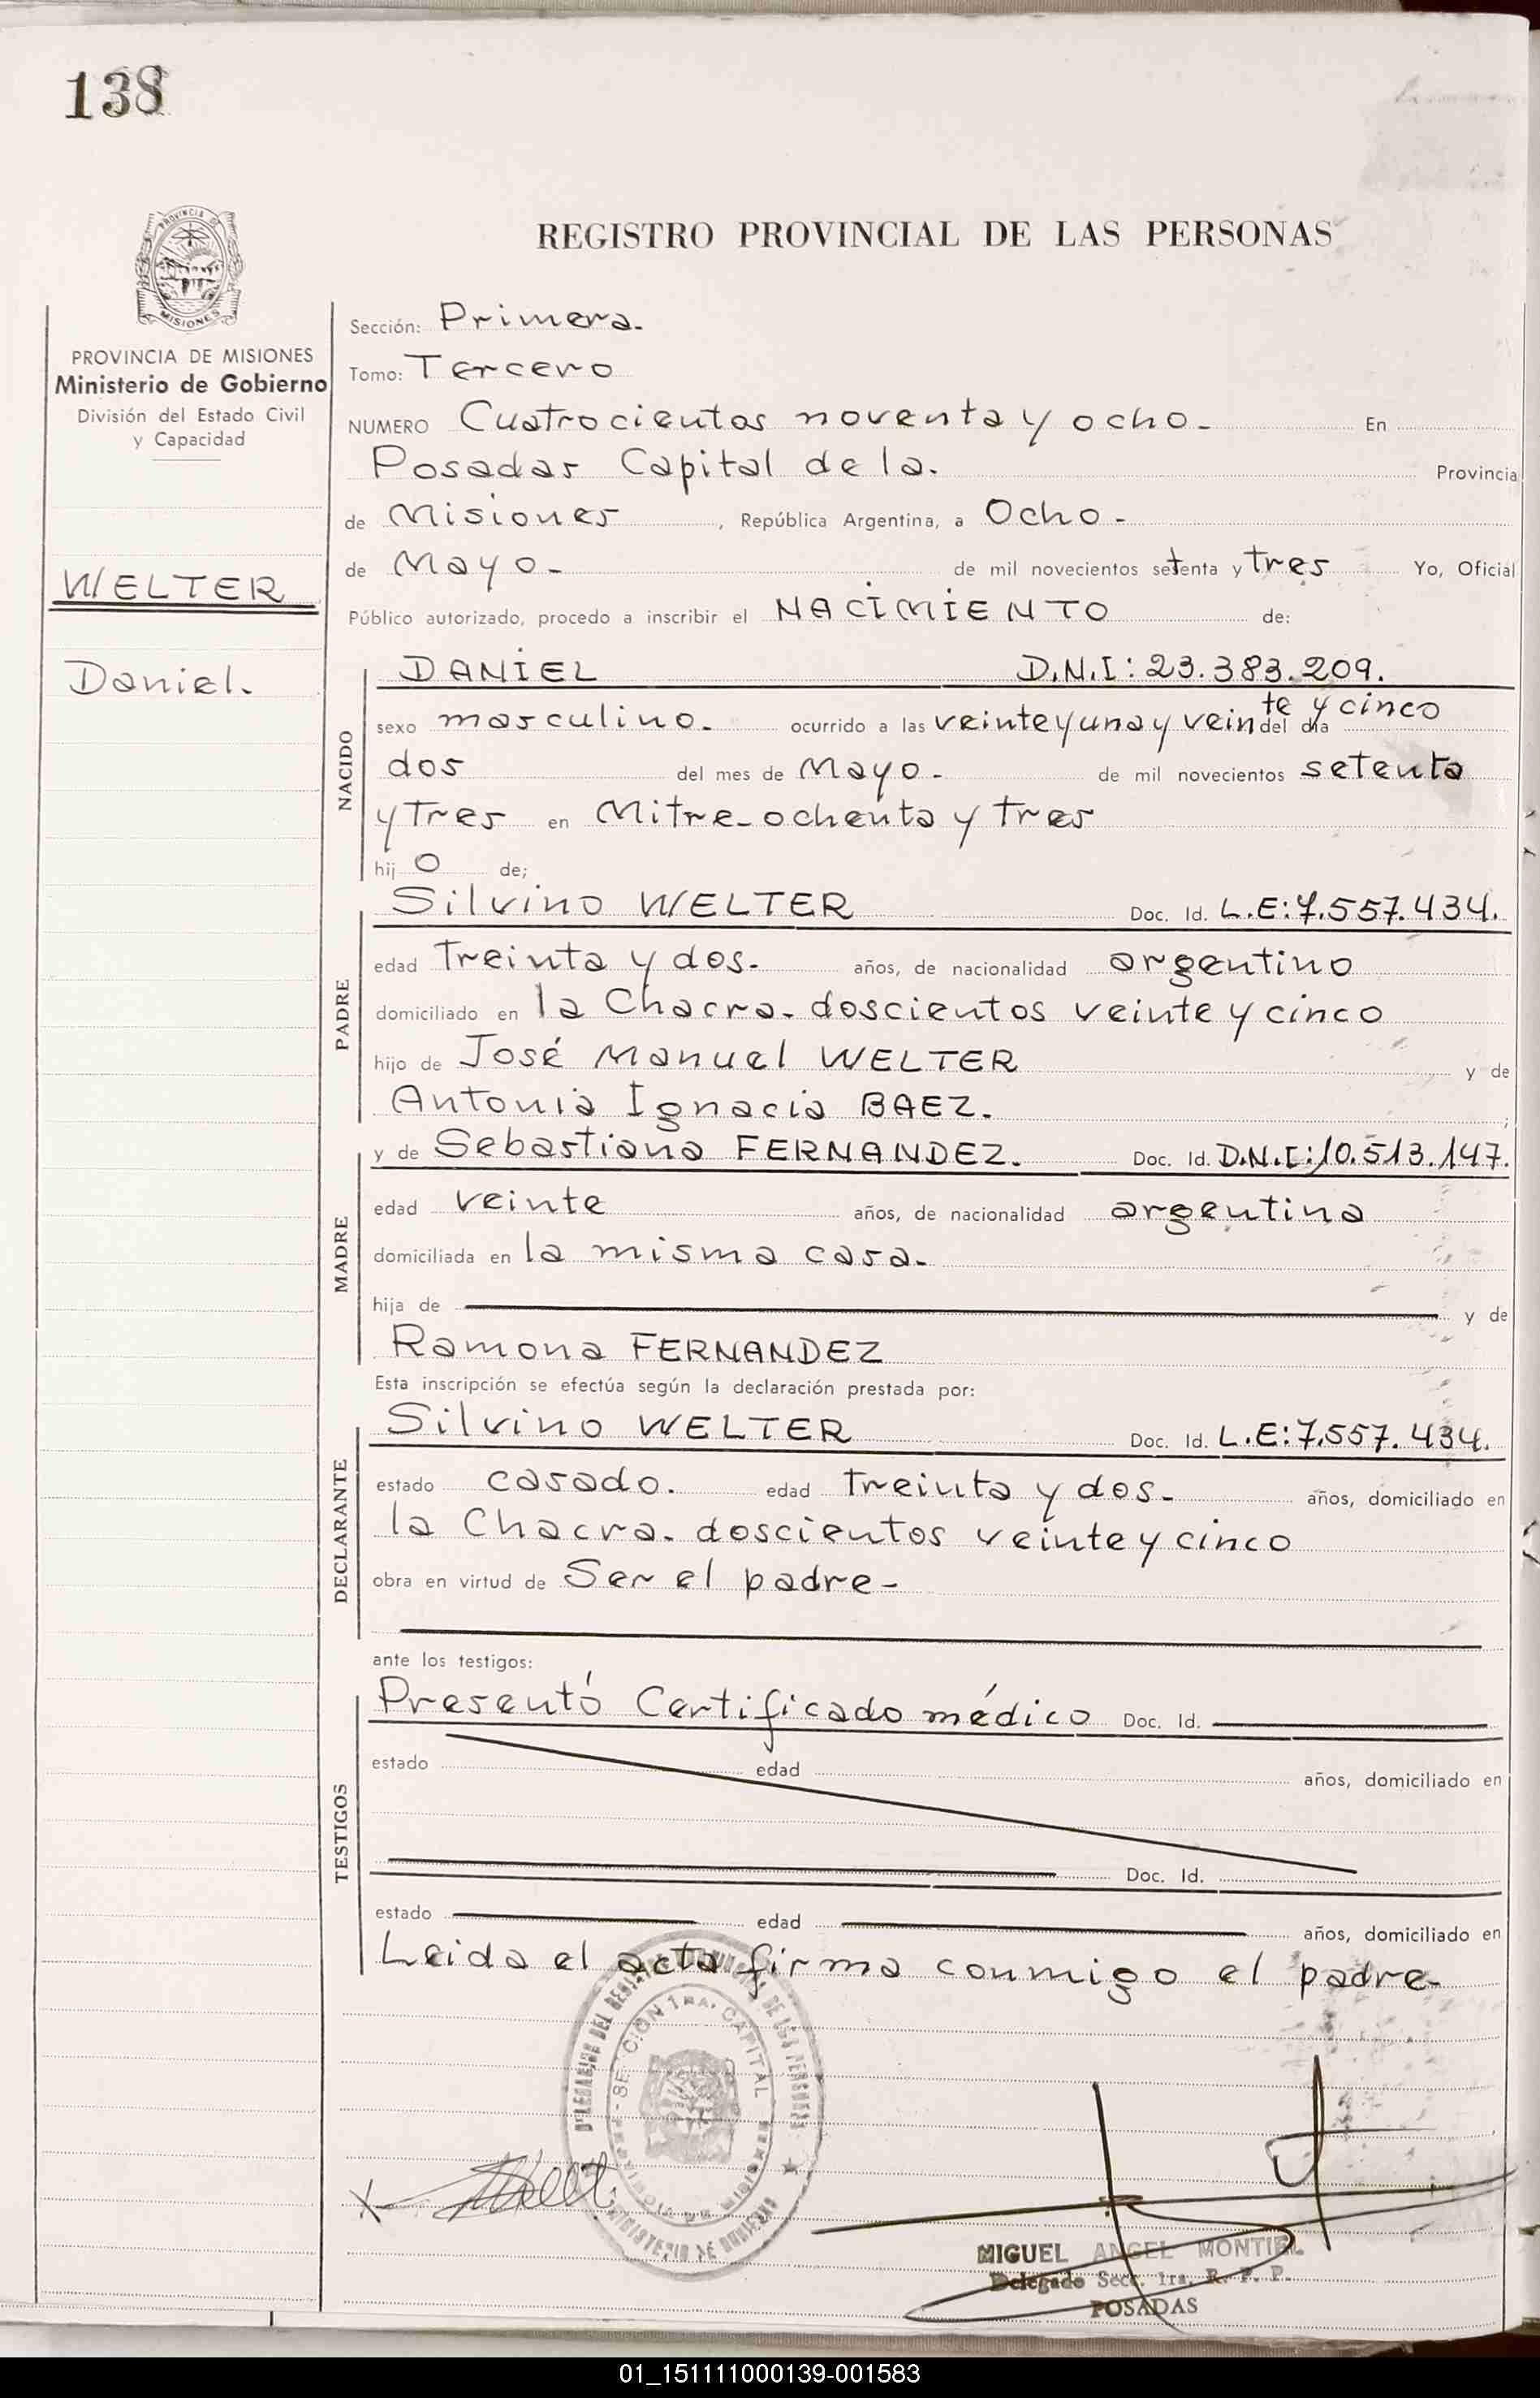 138
PROVINCIA DE MISIONES
REGISTRO PROVINCIAL DE LAS PERSONAS
PROVINCIA DE MISIONES
Ministerio de Gobierno
División del Estado Civil
y Capacidad
WELTER
Daniel.
Sección: Primera.
Tomo: Tercero
NUMERO Cuatrocientos noventa y ocho. En
Posadas Capital de la. Provincia
de Misiones, República Argentina, a Ocho.
de Mayo. de mil novecientos setenta y tres Yo, Oficial
Público autorizado, procedo a inscribir el NACIMIENTO de:
NACIDO
DANIEL D.N.I: 23.383.209.
sexo masculino. ocurrido a las veinte y una y veinte y cinco del día
dos del mes de Mayo. de mil novecientos setenta
y Tres en Mitre ochenta y tres
hijo de;
PADRE
Silvino WELTER Doc. Id. L.E: 7.557.434.
edad Treinta y dos. años, de nacionalidad argentino
domiciliado en la Chacra. doscientos veinte y cinco
hijo de José Manuel WELTER y de
Antonia Ignacia BAEZ.
MADRE
y de Sebastiana FERNANDEZ. Doc. Id. D.N.I: 10.513.147.
edad veinte años, de nacionalidad argentina
domiciliada en la misma casa.
hija de y de
Ramona FERNANDEZ
Esta inscripción se efectúa según la declaración prestada por:
DECLARANTE
Silvino WELTER Doc. Id. L.E: 7.557.434.
estado casado. edad Treinta y dos. años, domiciliado en
la Chacra. doscientos veinte y cinco
obra en virtud de Ser el padre-
ante los testigos:
TESTIGOS
Presentó Certificado médico Doc. Id.
estado edad años, domiciliado en
Doc. Id.
estado edad años, domiciliado en
Leida el acta firma conmigo el padre-
SECCION 1RA. CAPITAL
MIGUEL ANGEL MONTIEL
Delegado Secc. 1ra. R. P. P.
POSADAS
01_151111000139-001583